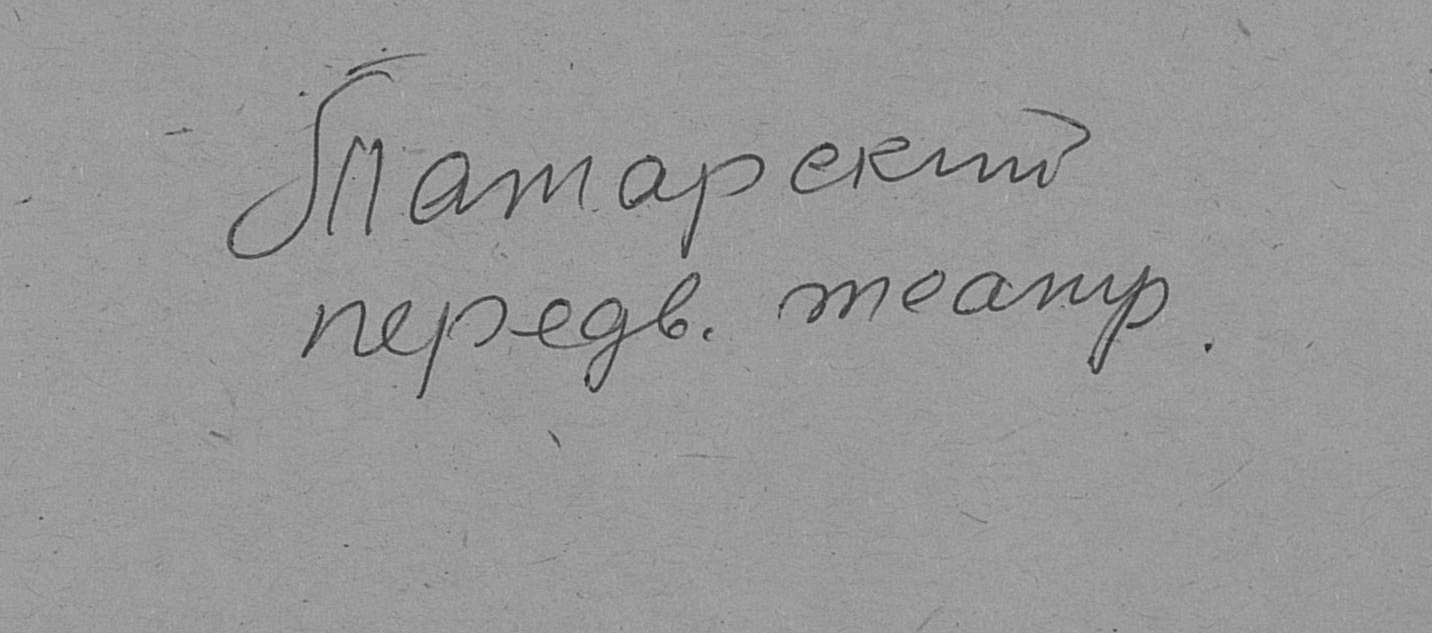 Татарский
передв. театр.